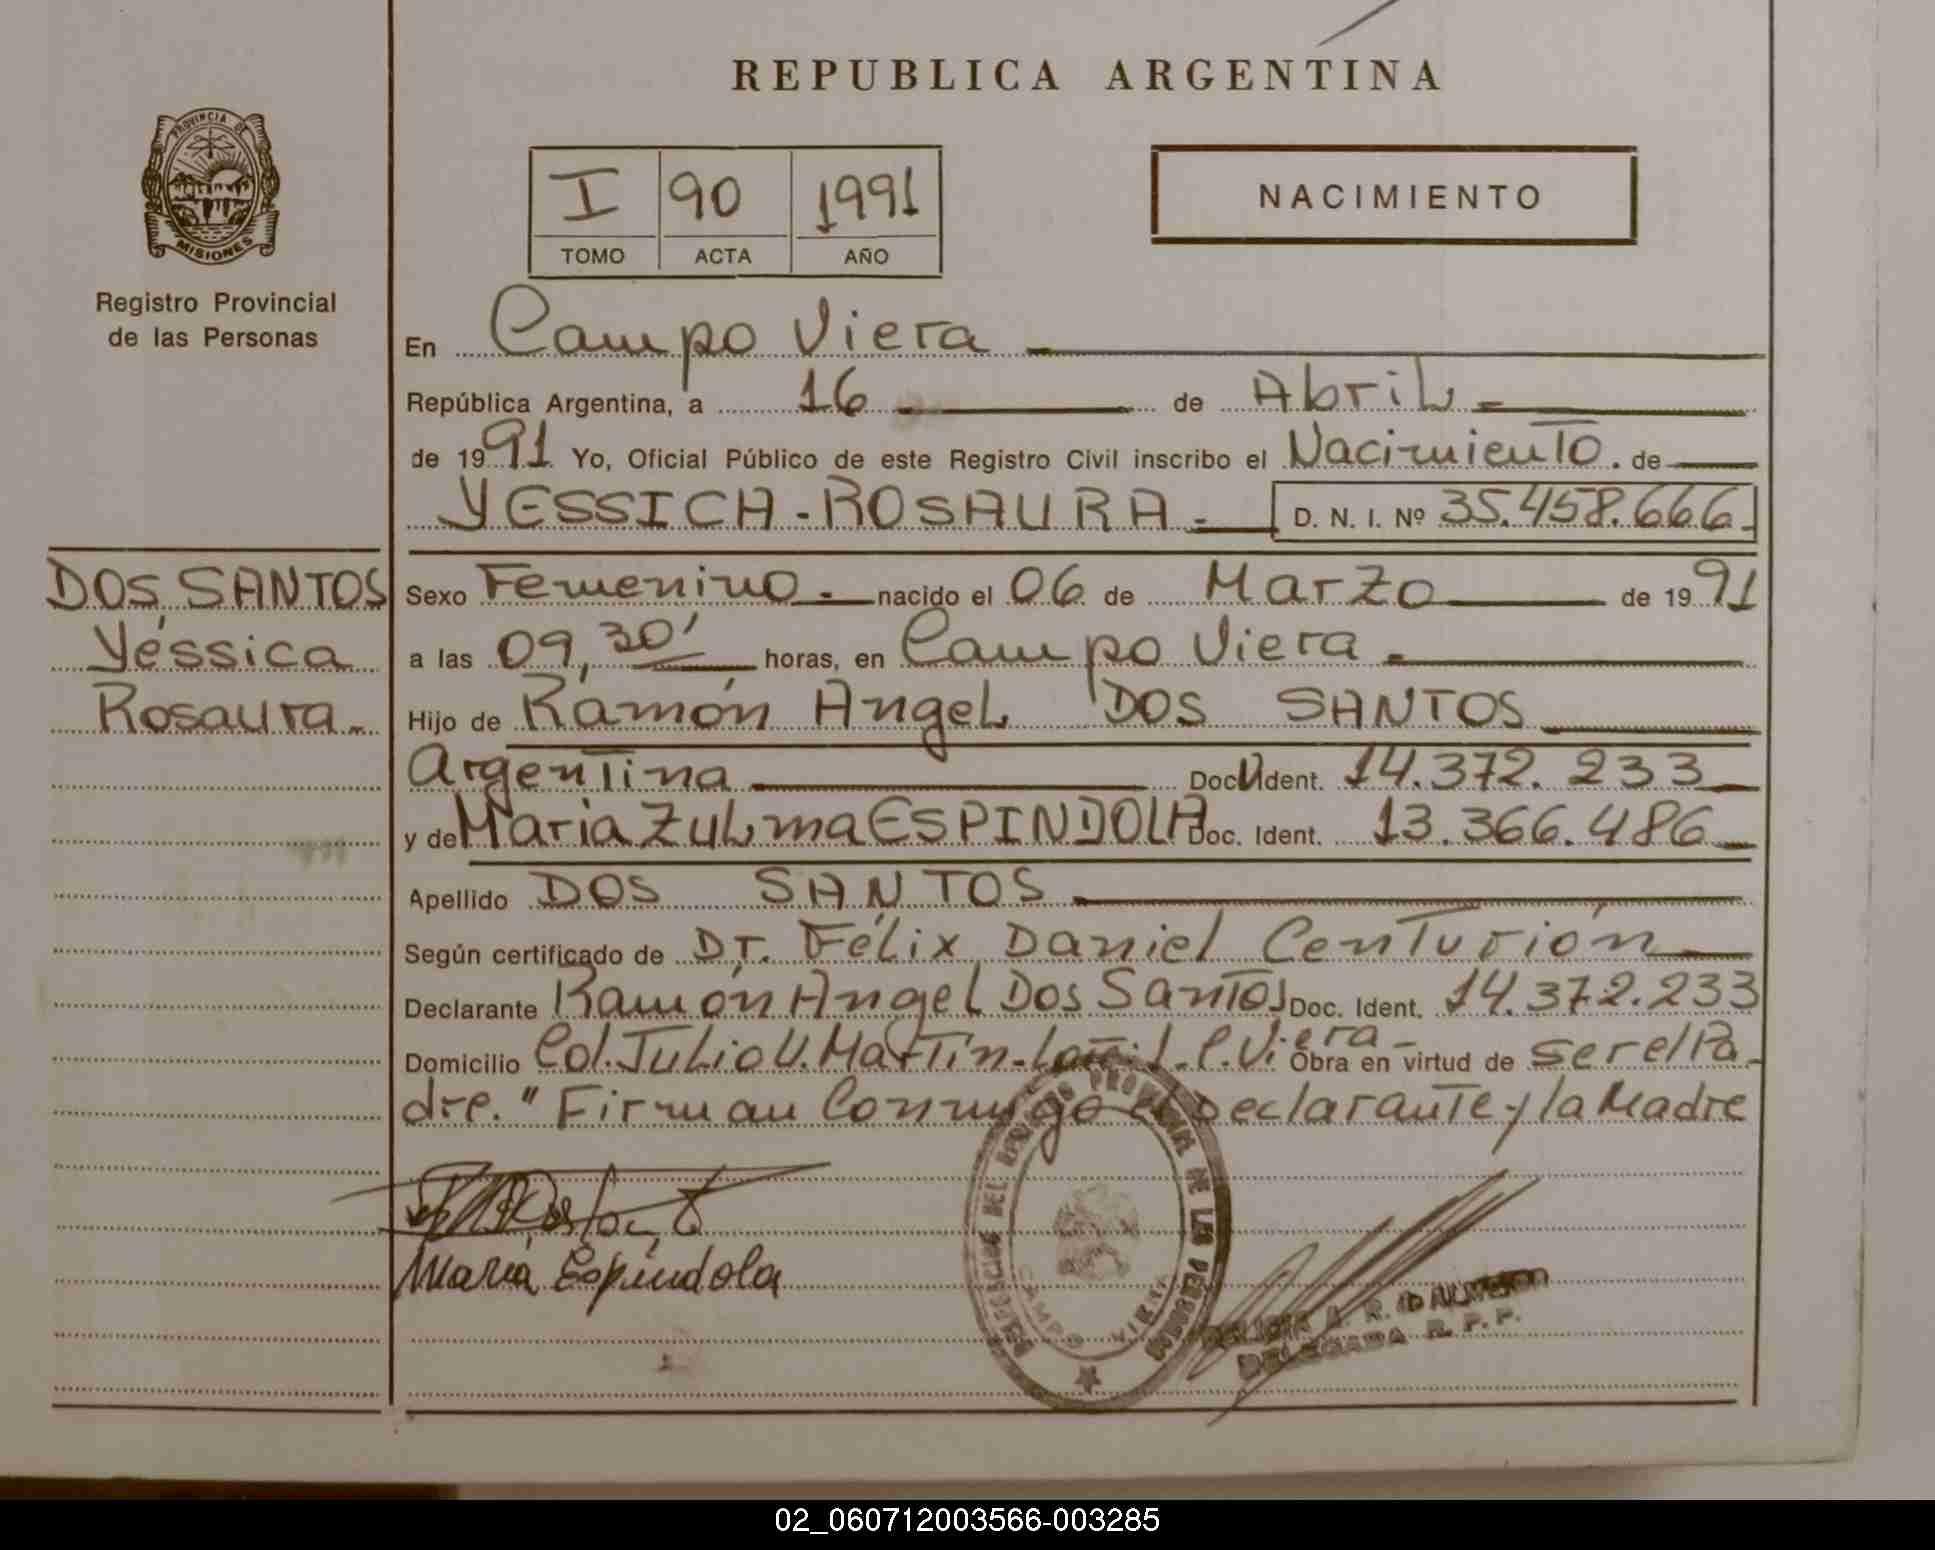 REPUBLICA ARGENTINA
PROVINCIA DE
MISIONES
Registro Provincial
de las Personas
I 90 1991
TOMO ACTA AÑO
NACIMIENTO
En Campo Viera
República Argentina, a 16 de Abril
de 1991 Yo, Oficial Público de este Registro Civil inscribo el Nacimiento. de
YESSICA - ROSAURA.- D. N. I. Nº 35.458.666.
DOS SANTOS
Yéssica
Rosaura.-
Sexo Femenino.- nacido el 06 de Marzo de 1991
a las 09,30' horas, en Campo Viera.-
Hijo de Ramón Angel DOS SANTOS
Argentina Doc. Ident. 14.372.233
y de Maria Zulma ESPINDOLA Doc. Ident. 13.366.486
Apellido DOS SANTOS
Según certificado de Dr. Félix Daniel Centurión
Declarante Ramón Angel Dos Santos Doc. Ident. 14.372.233
Domicilio Col. Julio U. Martin - C. Viera - Obra en virtud de ser el Pa-
dre." Firman Conmigo el Declarante y la Madre
María Espíndola
DEL REGISTRO PROVINCIAL DE LAS PERSONAS
CAMPO VIERA
A. R. D
DELEGADA R. P. P.
02_060712003566-003285